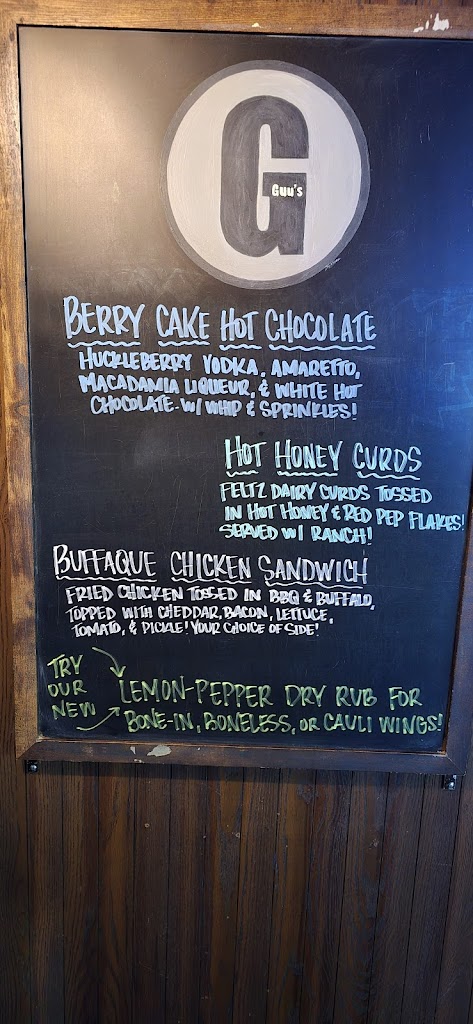 G
Guu's
BERRY CAKE HOT CHOCOLATE
HUCKLEBERRY VODKA, AMARETTO,
MACADAMIA LIQUEUR, & WHITE HOT
CHOCOLATE W/ WHIP & SPRINKLES!
HOT HONEY CURDS
FELTZ DAIRY CURDS TOSSED
IN HOT HONEY & RED PEP FLAKES!
SERVED W/ RANCH!
BUFFAQUE CHICKEN SANDWICH
FRIED CHICKEN TOSSED IN BBQ & BUFFALO,
TOPPED WITH CHEDDAR, BACON, LETTUCE,
TOMATO, & PICKLE! YOUR CHOICE OF SIDE!
TRY
OUR
NEW
LEMON-PEPPER DRY RUB FOR
BONE-IN, BONELESS, OR CAULI WINGS!